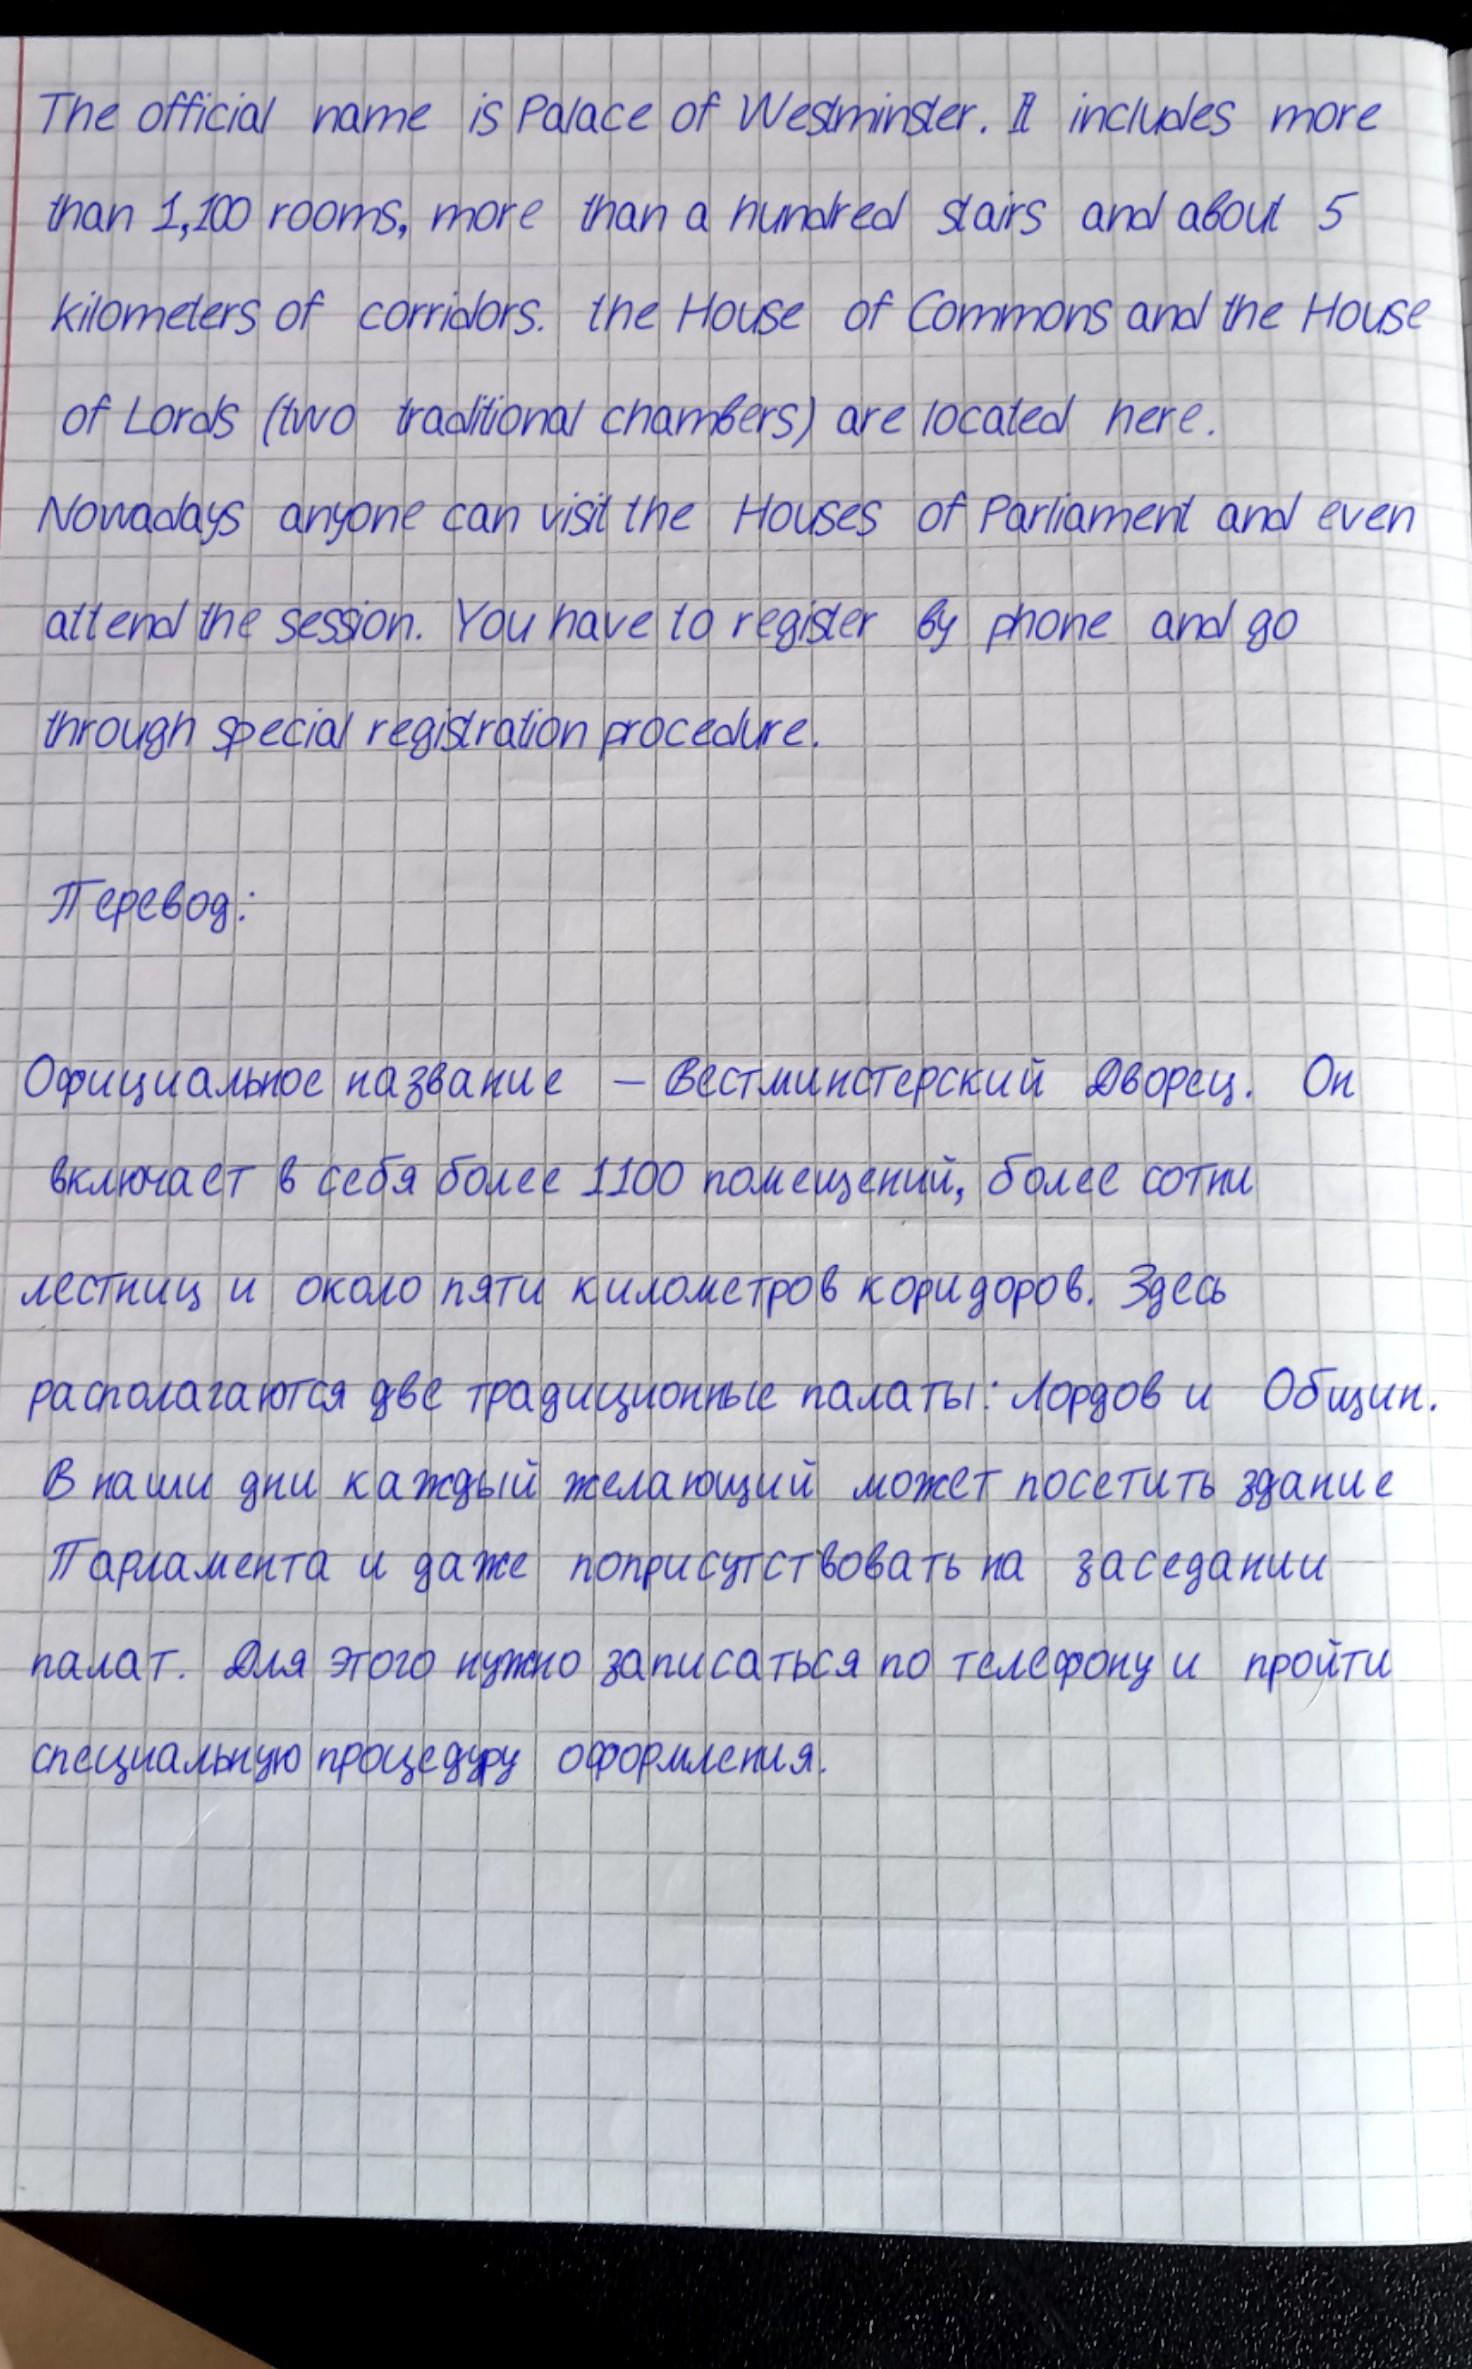 The official name is Palace of Westminster. It includes more
than 1,100 rooms, more than a hundred stairs and about 5
kilometers of corridors. the House of Commons and the House
of Lords (two traditional chambers) are located here.
Nowadays anyone can visit the Houses of Parliament and even
attend the session. You have to register by phone and go
through special registration procedure.
Перевод:
Официальное название – Вестминстерский Дворец. Он
включает в себя более 1100 помещений, более сотни
лестниц и около пяти километров коридоров. Здесь
располагаются две традиционные палаты: Лордов и Общин.
В наши дни каждый желающий может посетить здание
Парламента и даже поприсутствовать на заседании
палат. Для этого нужно записаться по телефону и пройти
специальную процедуру оформления.